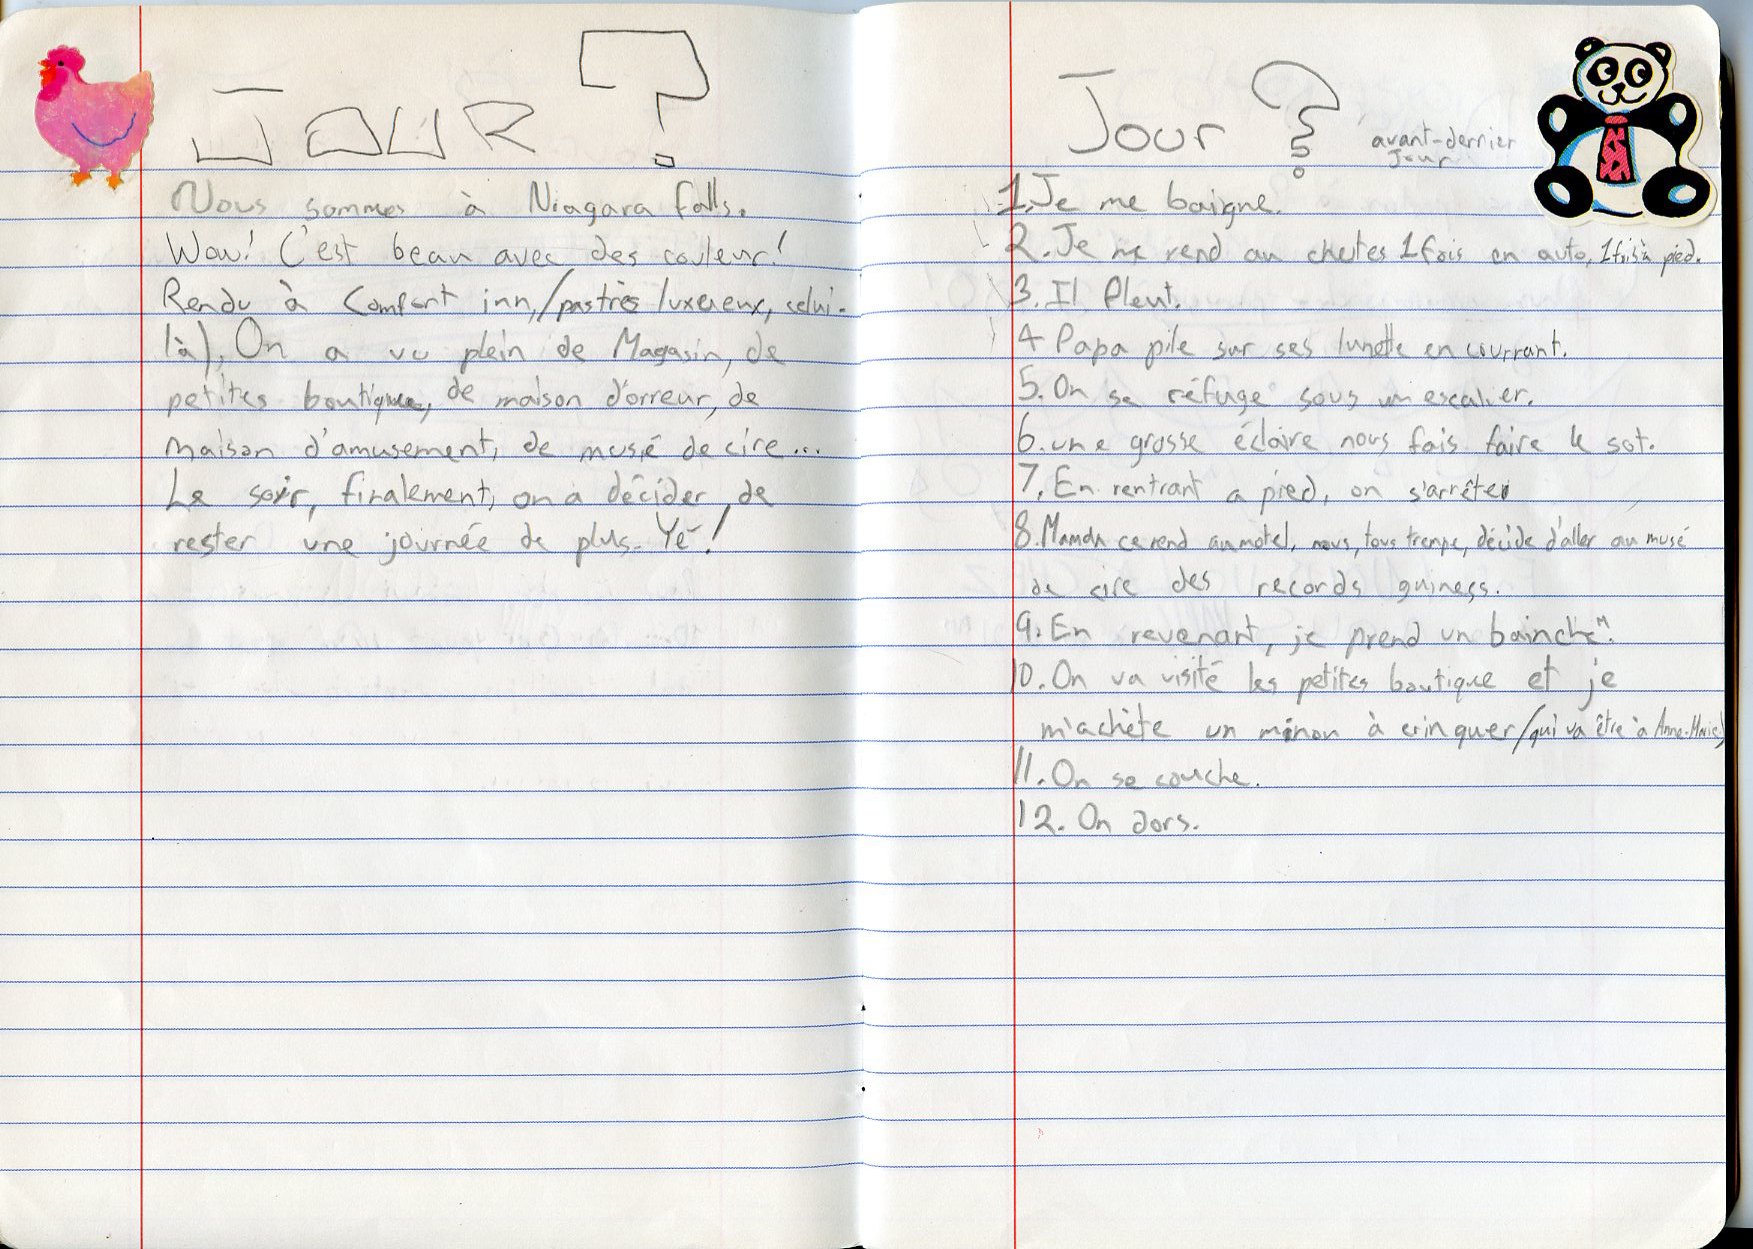 JOUR ?
Nous sommes à Niagara falls.
Wow! C'est beau avec des couleur!
Rendu à Comfort inn, (pas très luxueux, celui-
là), On a vu plein de Magasin, de
petites boutique, de maison d'orreur, de
maison d'amusement, de musé de cire...
Le soir, finalement, on a décider de
rester une journée de plus. Yé!
Jour ? avant-dernier
Jour
1. Je me baigne.
2. Je me rend au chutes 1 fois en auto, 1 fois à pied.
3. Il Pleut.
4 Papa pile sur ses lunette en courrant.
5. On se réfuge sous un escalier.
6. une grosse éclaire nous fais faire le sot.
7. En rentrant a pied, on s'arrête
8. Maman ce rend au motel, nous, tous trempe, décide d'aller au musé
de cire des records guiness.
9. En revenant, je prend un bain
10. On va visité les petites boutique et je
m'achète un minon à crinquer (qui va être à Anne-Marie)
11. On se couche.
12. On dors.